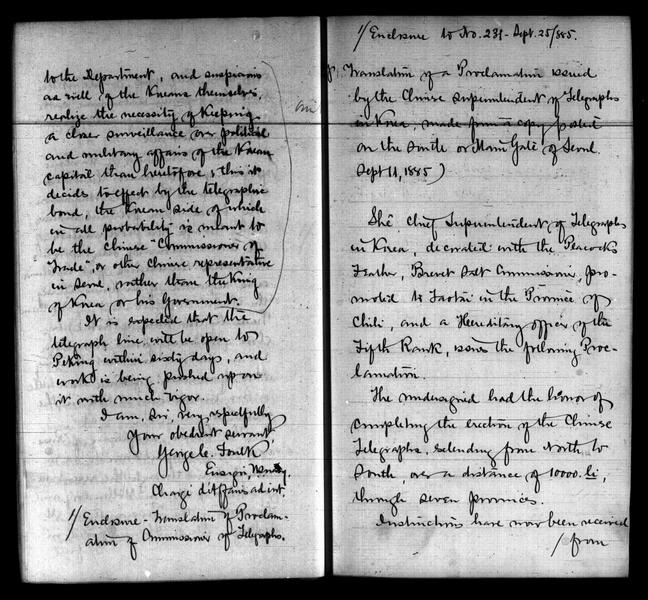 to the Department, and suspicions
as well of the Koreans themselves,
realize the necessity of keeping
a close surveillance over political
and military affairs of the Korean
capital than heretofore; this it
decides to effect by the telegraphic
bond, the Korean side of which
in all probability is meant to
be the Chinese "Commissioner of
Trade", or other Chinese representative
in Seoul, rather than the King
of Korea or his Government.
It is expected that the
telegraph line will be open to
Peking within sixty days, and
work is being pushed upon
it with much vigor.
I am, Sir, very respectfully
Your obedient servant
George C. Foulk
Ensign, U.S. Navy
Chargé d'Affaires ad int.
1/ Enclosure - Translation of Proclam-
ation of Commissioner of Telegraphs.
1/ Enclosure to No. 231 - Sept. 25/885.
Translation of a Proclamation issued
by the Chinese Superintendent of Telegraphs
in Korea, made from a copy posted
on the South or Main Gate of Seoul
Sept 11, 1885)
She, Chief Superintendent of Telegraphs
in Korea, decorated with the Peacocks
Feather, Brevet Salt Commissioner, pro-
moted to Taotai in the Province of
Chili, and a Hereditary officer of the
Fifth Rank, issues the following Proc-
lamation.
The undersigned had the honor of
completing the erection of the Chinese
Telegraphs, extending from North to
South, over a distance of 10000 li,
through seven provinces.
Instructions have now been received
/ from